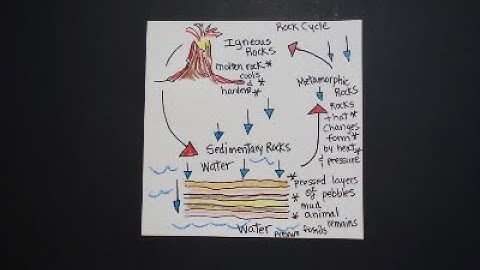 Rock Cycle
Igneous
Rocks
molten rock *
cools *
&
hardens *
Metamorphic
Rocks
Rocks
that *
Changes
form *
by heat *
& pressure
Sedimentary Rocks
Water
* pressed layers
of
* of pebbles
mud
* animal
remains
Water pressure fossils